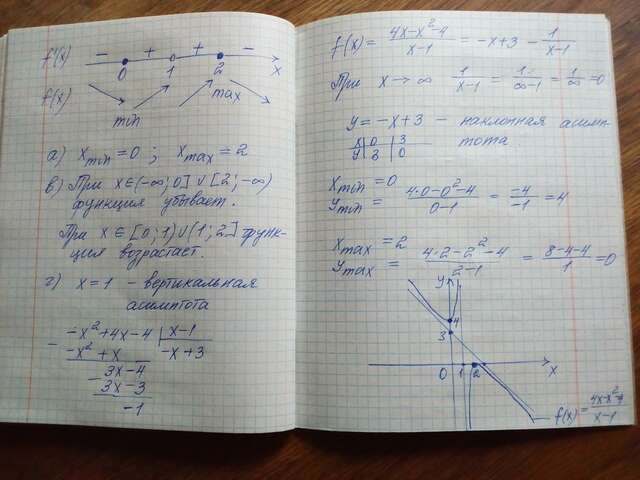 f'(x) − + + −
0 1 2 x
f(x) min max
а) x_min = 0 ; x_max = 2
в) При x∈(-∞; 0] ∪ [2; -∞)
функция убывает.
При x ∈ [0; 1) ∪ (1; 2] функ-
ция возрастает.
г) x = 1 - вертикальная
асимптота
-x² + 4x - 4 | x - 1
-x² + x | -x + 3
3x - 4
3x - 3
-1
f(x) = (4x - x² - 4)/(x - 1) = -x + 3 - 1/(x - 1)
При x → ∞ 1/(x-1) = 1/(∞-1) = 1/∞ = 0
y = -x + 3 - наклонная асимп-
тота
x | 0 | 3
y | 3 | 0
x_min = 0
y_min = (4·0 - 0² - 4)/(0 - 1) = -4/-1 = 4
x_max = 2
y_max = (4·2 - 2² - 4)/(2 - 1) = (8 - 4 - 4)/1 = 0
y
4
3
0 1 2 x
f(x) = (4x - x² - 4)/(x - 1)